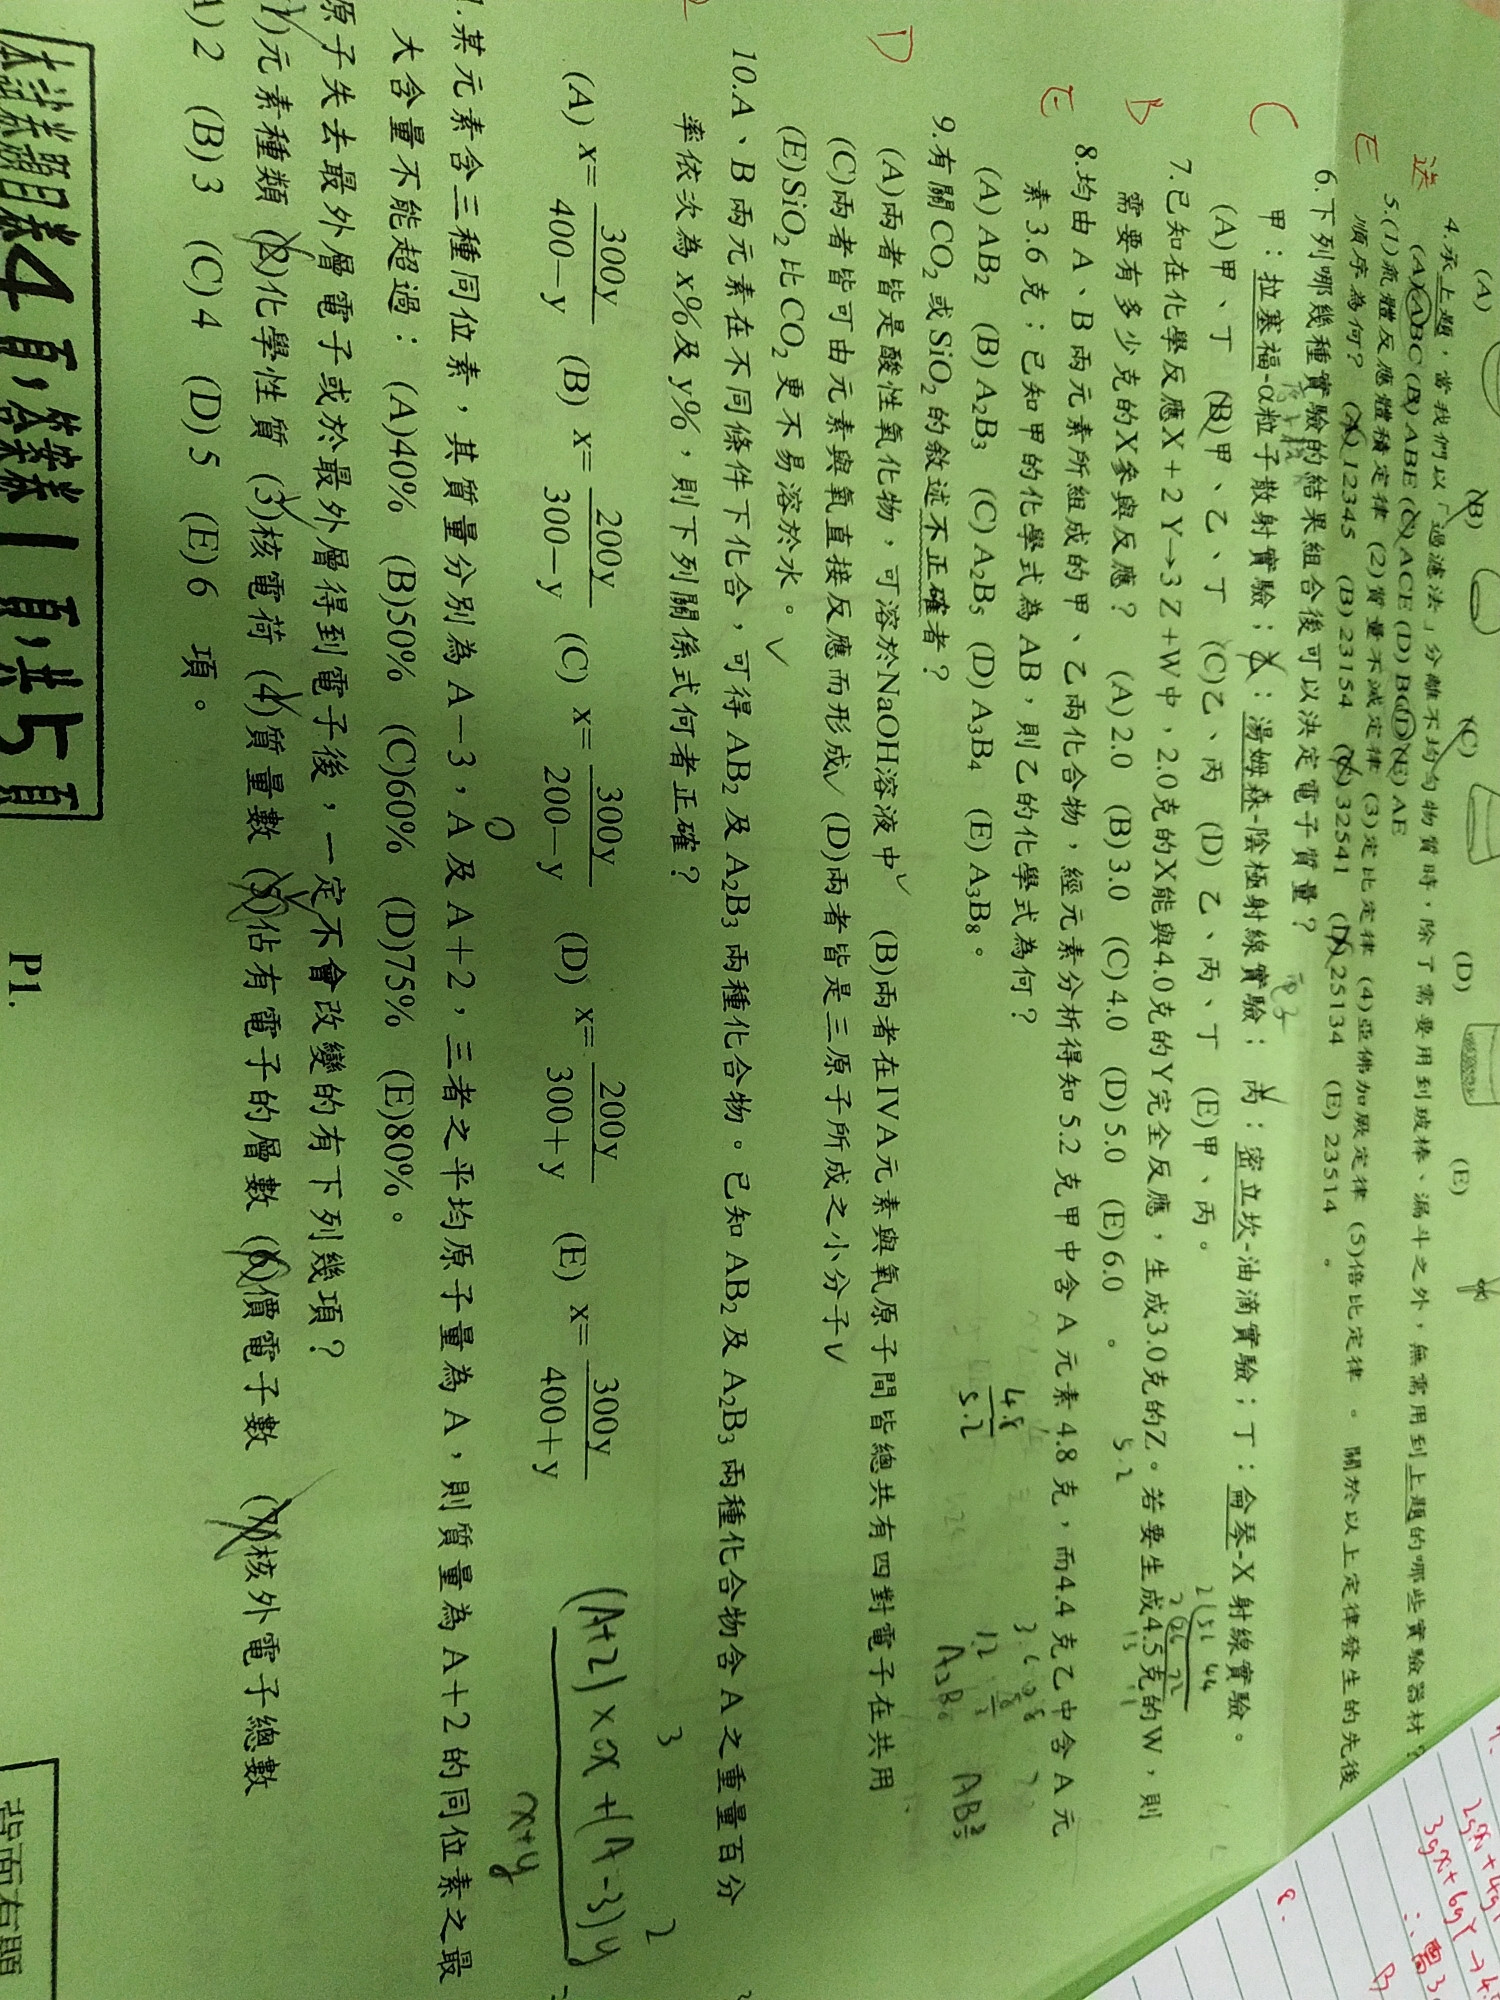 (A) (B) (C) (D) (E)
4.承上題,當我們以「過濾法」分離不均勻物質時,除了需要用到玻棒、漏斗之外,無需用到上題的哪些實驗器材?
(A)ABC (B) ABE (C) ACE (D) BCD (E) AE
送
5.(1)氣體反應體積定律 (2)質量不滅定律 (3)定比定律 (4)亞佛加厥定律 (5)倍比定律 。 關於以上定律發生的先後
順序為何? (A) 12345 (B) 23154 (C) 32541 (D) 25134 (E) 23514 。
E
6.下列哪幾種實驗的結果組合後可以決定電子質量?
甲:拉塞福-α粒子散射實驗; 乙:湯姆森-陰極射線實驗; 丙:密立坎-油滴實驗;丁:侖琴-X射線實驗。
(A)甲、丁 (B)甲、乙、丁 (C)乙、丙 (D) 乙、丙、丁 (E)甲、丙。
C
7.已知在化學反應X+2Y→3Z+W中,2.0克的X能與4.0克的Y完全反應,生成3.0克的Z。若要生成4.5克的W,則
需要有多少克的X參與反應? (A)2.0 (B)3.0 (C)4.0 (D)5.0 (E)6.0 。
B
5.2
8.均由A、B兩元素所組成的甲、乙兩化合物,經元素分析得知5.2克甲中含A元素4.8克,而4.4克乙中含A元
素3.6克;已知甲的化學式為AB,則乙的化學式為何?
(A) AB2 (B) A2B3 (C) A2B5 (D) A3B4 (E) A3B8。
E
4.8
5.2
9.有關CO2或SiO2的敘述不正確者?
(A)兩者皆是酸性氧化物,可溶於NaOH溶液中✓ (B)兩者在IVA元素與氧原子間皆總共有四對電子在共用
(C)兩者皆可由元素與氧直接反應而形成✓ (D)兩者皆是三原子所成之小分子✓
(E)SiO2比CO2更不易溶於水。✓
D
10.A、B兩元素在不同條件下化合,可得AB2及A2B3兩種化合物。已知AB2及A2B3兩種化合物含A之重量百分
率依次為x%及y%,則下列關係式何者正確?
(A) x=300y/400−y (B) x=200y/300−y (C) x=300y/200−y (D) x=200y/300+y (E) x=300y/400+y
(A+2)×x+(A-3)y
x+y
.某元素含三種同位素,其質量分別為A−3,A及A+2,三者之平均原子量為A,則質量為A+2的同位素之最
大含量不能超過: (A)40% (B)50% (C)60% (D)75% (E)80%。
原子失去最外層電子或於最外層得到電子後,一定不會改變的有下列幾項?
1)元素種類 (2)化學性質 (3)核電荷 (4)質量數 (5)佔有電子的層數 (6)價電子數 (7)核外電子總數
A)2 (B)3 (C)4 (D)5 (E)6 項。
本試題卷4頁,答案卷1頁,共5頁
P1.
背面有題